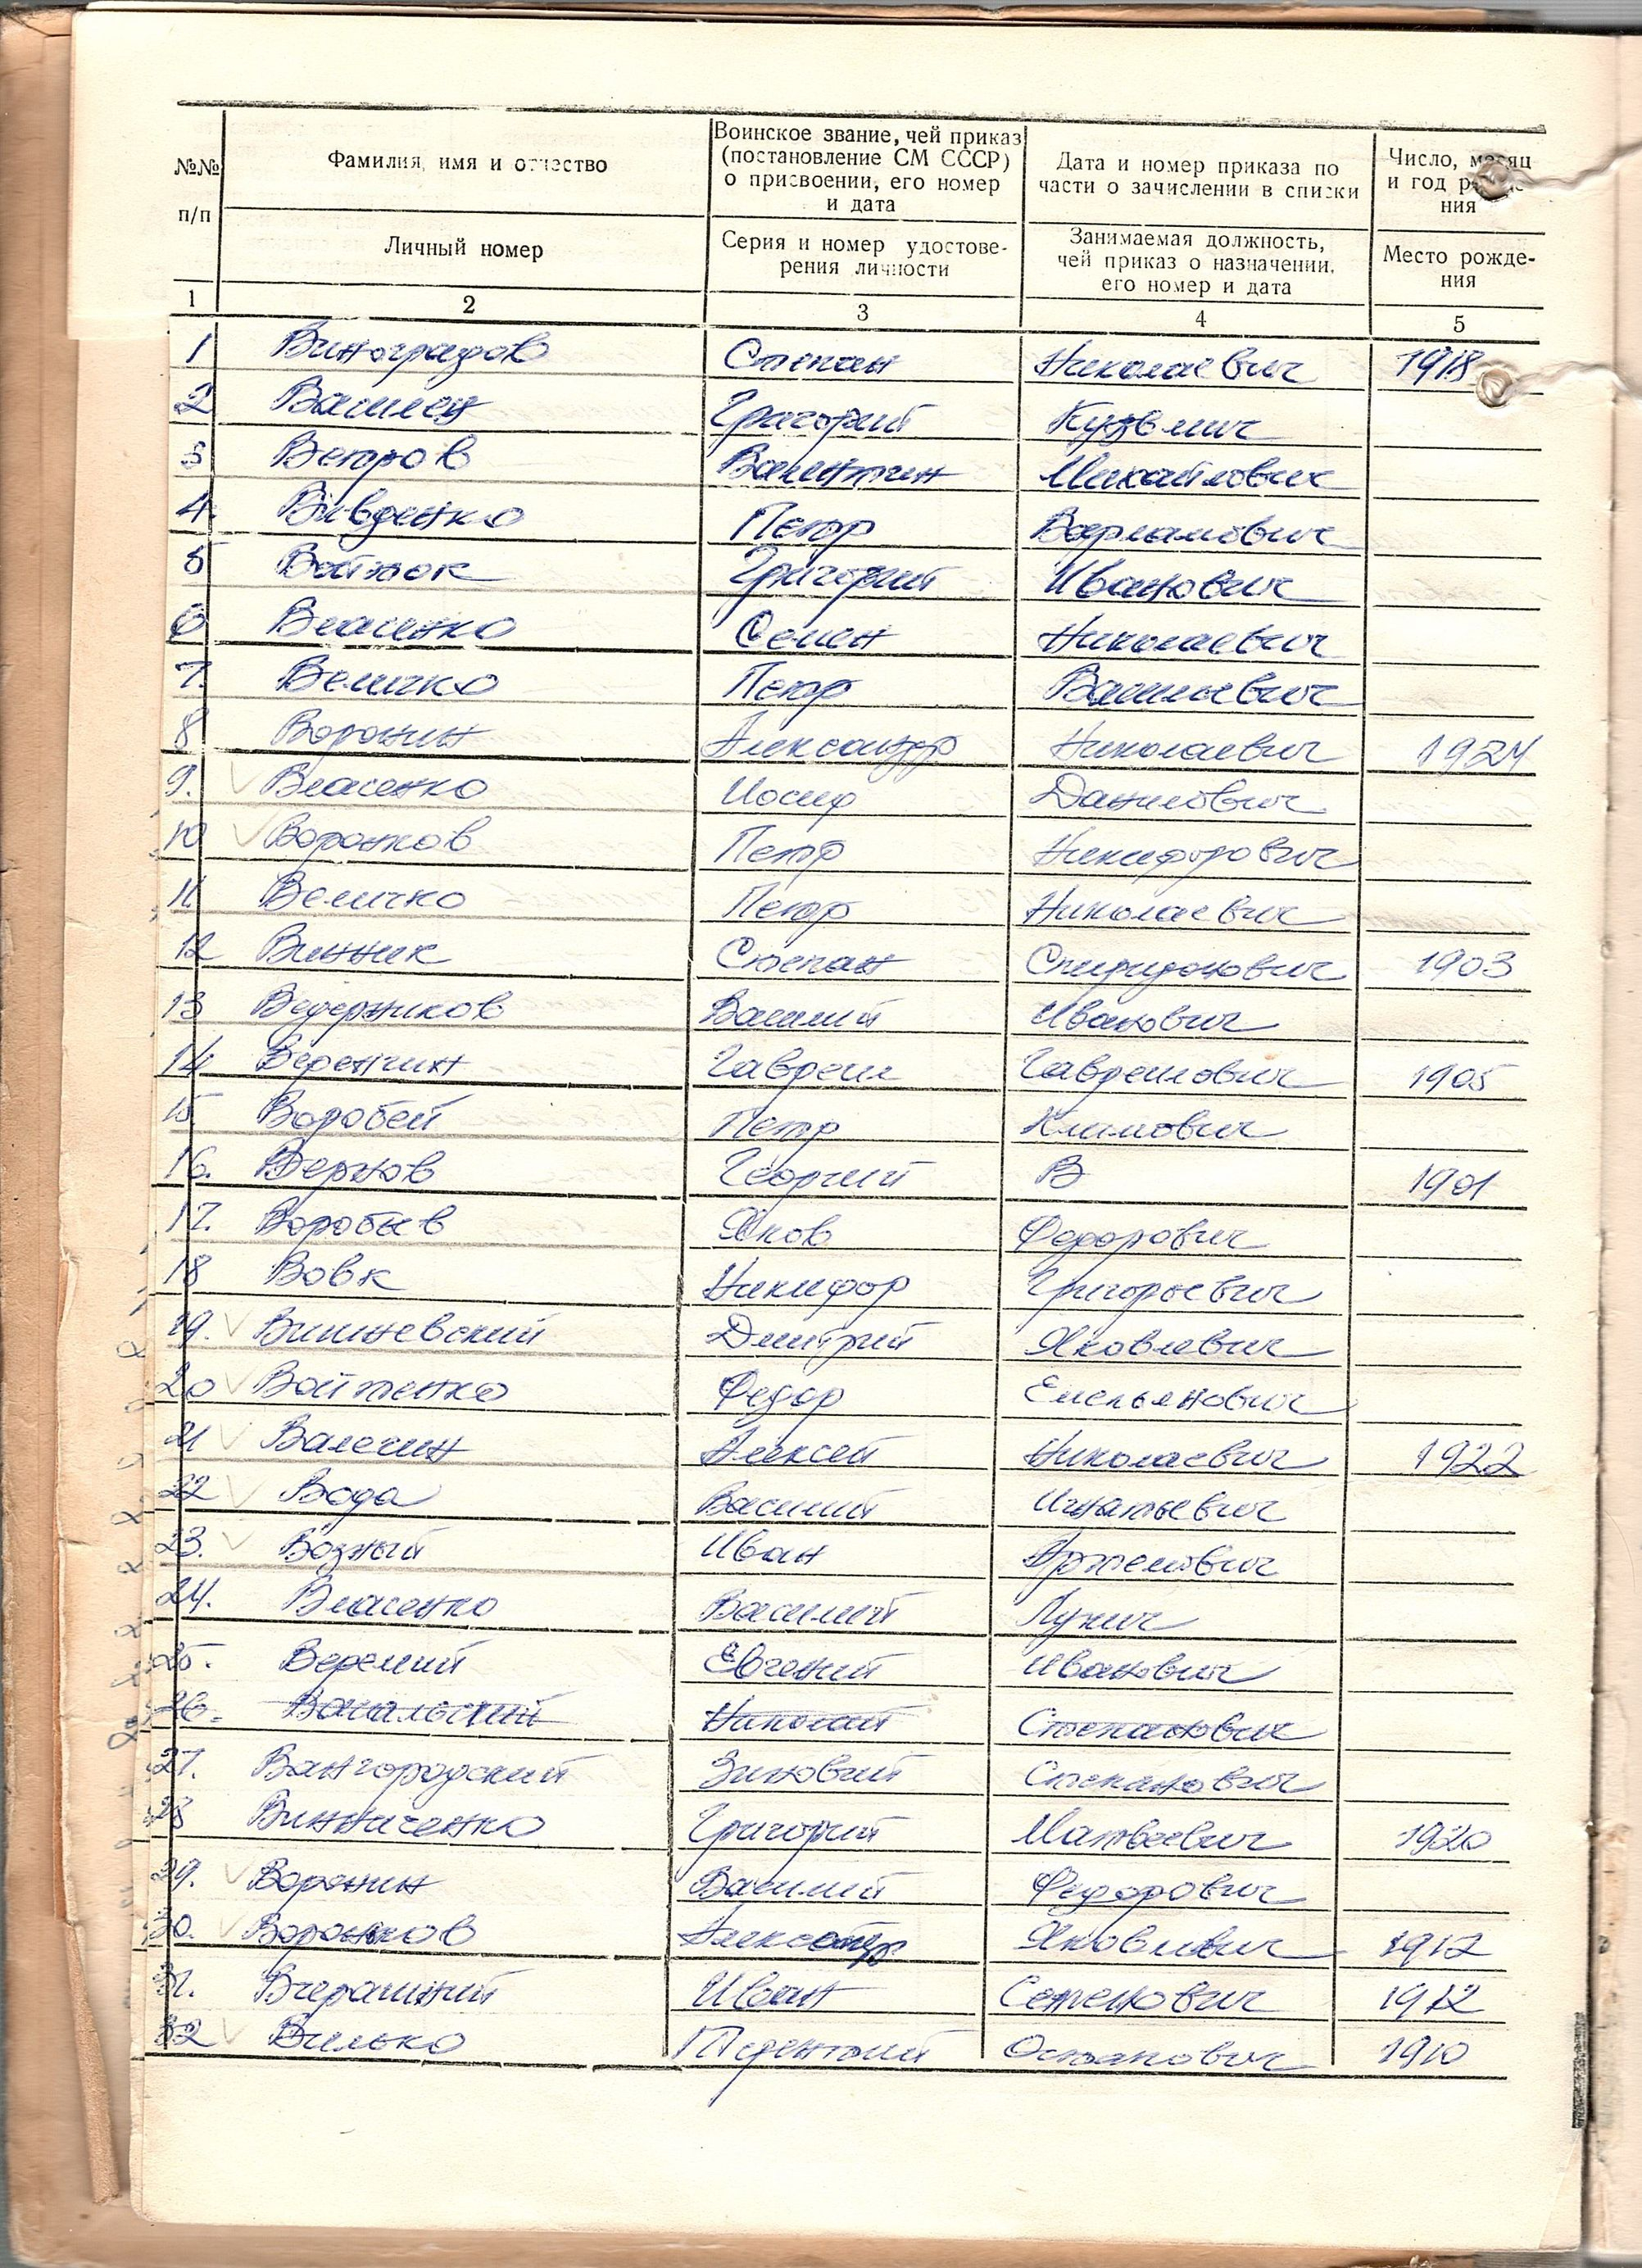 №№ п/п
Фамилия, имя и отчество
Воинское звание, чей приказ
(постановление СМ СССР)
о присвоении, его номер
и дата
Дата и номер приказа по
части о зачислении в списки
Число, месяц
и год рождения
Личный номер
Серия и номер удостове-
рения личности
Занимаемая должность,
чей приказ о назначении,
его номер и дата
Место рожде-
ния
1 2 3 4 5
1 Виноградов Степан Николаевич 1918
2 Василец Григорий Кузьмич
3 Ветров Валентин Михайлович
4. Вивденко Петр Варламович
5 Войнок Григорий Иванович
6 Власенко Семен Николаевич
7. Величко Петр Васильевич
8 Воронин Александр Николаевич 1924
9. Власенко Иосиф Данилович
10 Воронков Петр Никифорович
11 Величко Петр Николаевич
12 Винник Степан Спиридонович 1903
13 Ведерников Василий Иванович
14 Веренчин Гавреил Гавреилович 1905
15 Воробей Петр Климович
16. Вернов Георгий В 1901
17. Воробьев Яков Федорович
18 Вовк Никифор Григорьевич
19. Вишневский Дмитрий Яковлевич
20 Войтенко Федор Емельянович
21 Валегин Алексей Николаевич 1922
22 Вода Василий Игнатьевич
23. Возный Иван Артемович
24. Власенко Василий Лукич
25. Веремий Евгений Иванович
26. Николай Степанович
27. Вангородский Зиновий Степанович
28 Винниченко Григорий Матвеевич 1920
29. Воронин Василий Федорович
30. Воронков Александр Яковлевич 1912
31. Вчерашний Иван Семенович 1912
32 Вилько Терентий Остапович 1910